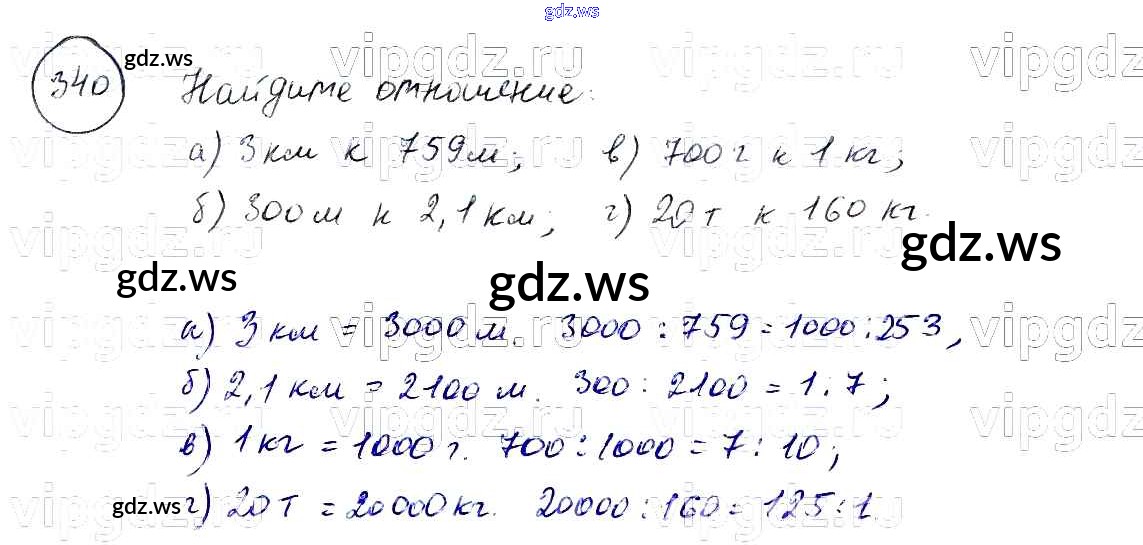 gdz.ws
vipgdz.ru vipgdz.ru vipgdz.ru vipgdz
gdz.ws
340 Найдите отношение:
vipgdz.ru vipgdz.ru vipgdz.ru vipgdz
а) 3 км к 759 м; в) 700 г к 1 кг;
б) 300 м к 2,1 км; г) 20 т к 160 кг.
vipgdz.ru vipgdz.ru vipgdz.ru vipgdz
gdz.ws gdz.ws gdz.ws
vipgdz.ru vipgdz.ru vipgdz.ru vipgdz
а) 3 км = 3000 м. 3000 : 759 = 1000 : 253,
б) 2,1 км = 2100 м. 300 : 2100 = 1 : 7;
vipgdz.ru vipgdz.ru vipgdz.ru vipgdz
в) 1 кг = 1000 г. 700 : 1000 = 7 : 10;
gdz.ws
г) 20 т = 20000 кг. 20000 : 160 = 125 : 1.
vipgdz.ru vipgdz.ru vipgdz.ru vipgdz